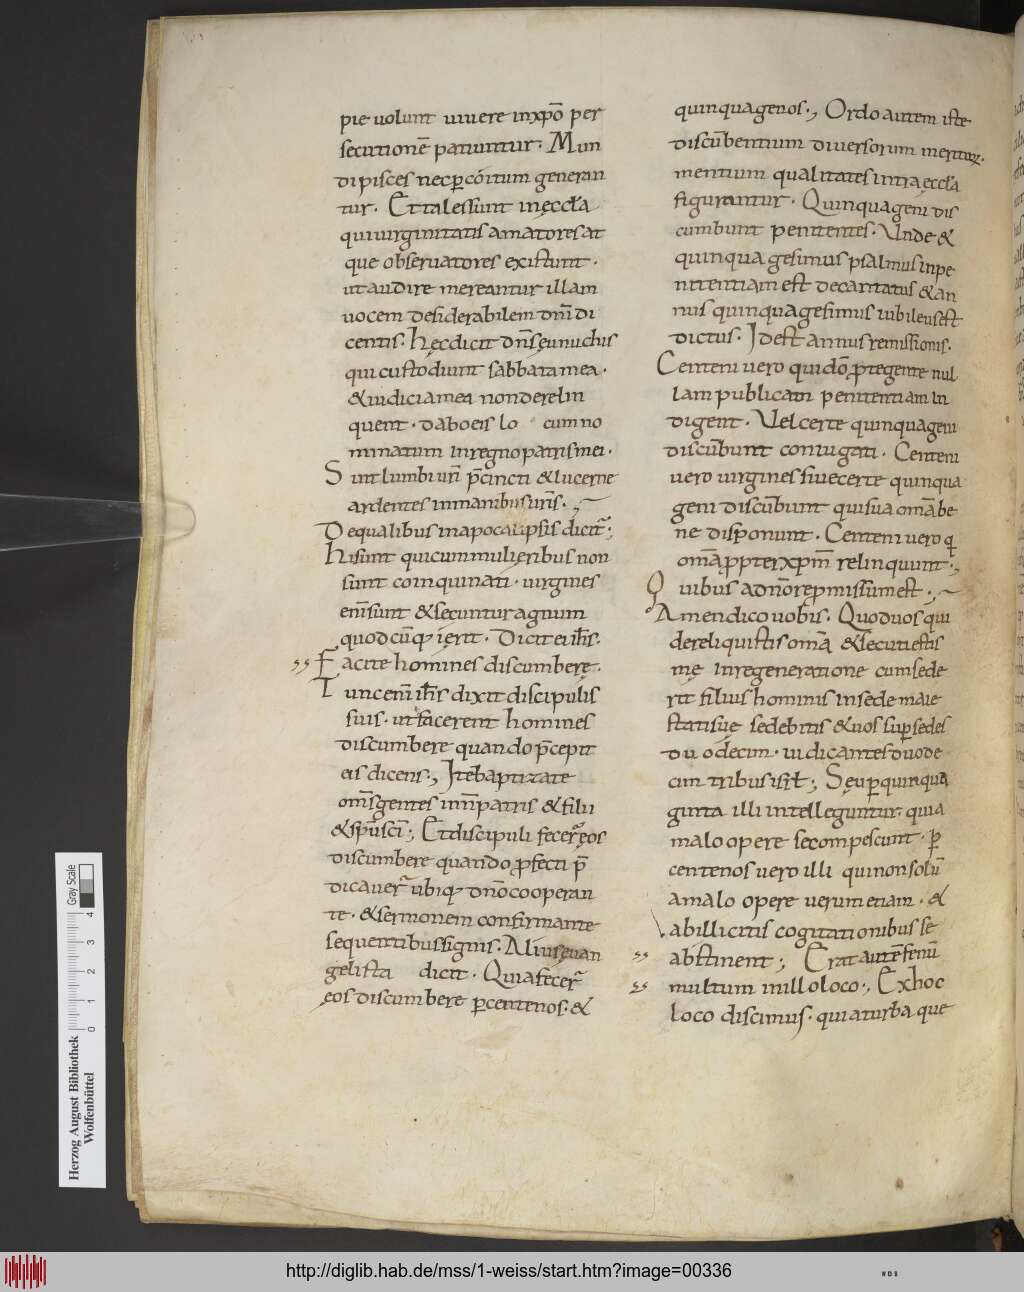 pie uolunt uiuere in xpō per
secutionē patiuntur. Mun
di pisces nec p̲ cóitum generan
tur. Et tales sunt in ęccła
qui uirginitatis amatores at
que obseruatores existunt.
ut audire mereantur illam
uocem desiderabilem dnī di
centis. Hęc dicit dn̄s eunuchis
qui custodiunt sabbata mea.
& iudicia mea non derelin
quent. dabo eis lo cum no
minatum in regno patris mei.
Sint lumbi urī p̄cincti & lucerne
ardentes in manibus uris.,
De qualibus in apocalipsis dicit̄.,
Hi sunt qui cum mulieribus non
sunt coinquinati. uirgines
enī sunt & secuntur agnum
quodcūq; ierit. Dicit ei ih̄s.
Facite homines discumbere.
Tunc enī ih̄s dixit discipulis
suis. ut facerent homines
discumbere quando p̄cepit
eis dicens., Ite baptizate
om̄s gentes in nn̄ patris & filii
& sp̄us scī., Et discipuli fecer̄ eos
discumbere quando p̲fecti p̄
dicauer̄ ubiq; dn̄o cooperan
te. & sermonem confirmante
sequentibus signis. Alius euan
gelista dicit. Quia fecer̄
eos discumbere p̲ centenos. &
quinquagenos., Ordo autem iste
discūbentium diuersorum meritor̄.
mentium qualitates intra ęccła
figurantur. Quinquageni dis
cumbunt penitentes. Unde &
quinquagesimus psalmus in pe
nitentiam est decantatus & an
nus quinquagesimus iubileus est
dictus. Id est annus remissionis.
Centeni uero qui dō p̲tegente nul
lam publicam penitentiam in
digent. Uel certe quinquageni
discūbunt coniugati. Centeni
uero uirgines siue certe quinqua
geni discūbunt qui sua omā be
ne disponunt. Centeni uero q
omā p̲pter xpm̄ relinquunt.,
Quibus a dnō rep̲missum est.,
Amen dico uobis. Quod uos qui
dereliquistis omā & secuti estis
me in regeneratione cum sede
rit filius hominis in sede maie
statis suę sedebitis & uos sup̲ sedes
duodecim. iudicantes duode
cim tribus isrł., Seu p̲ quinqua
ginta illi intelleguntur. quia
malo opere se compescunt. p̲
centenos uero illi qui non solū
a malo opere uerum etiam. &
ab illicitis cogitationibus se
abstinent., Erat autē fenū
multum in illo loco., Ex hoc
loco discimus. quia turba que
Herzog August Bibliothek
Wolfenbüttel
Gray Scale
0 1 2 3 4
http://diglib.hab.de/mss/1-weiss/start.htm?image=00336